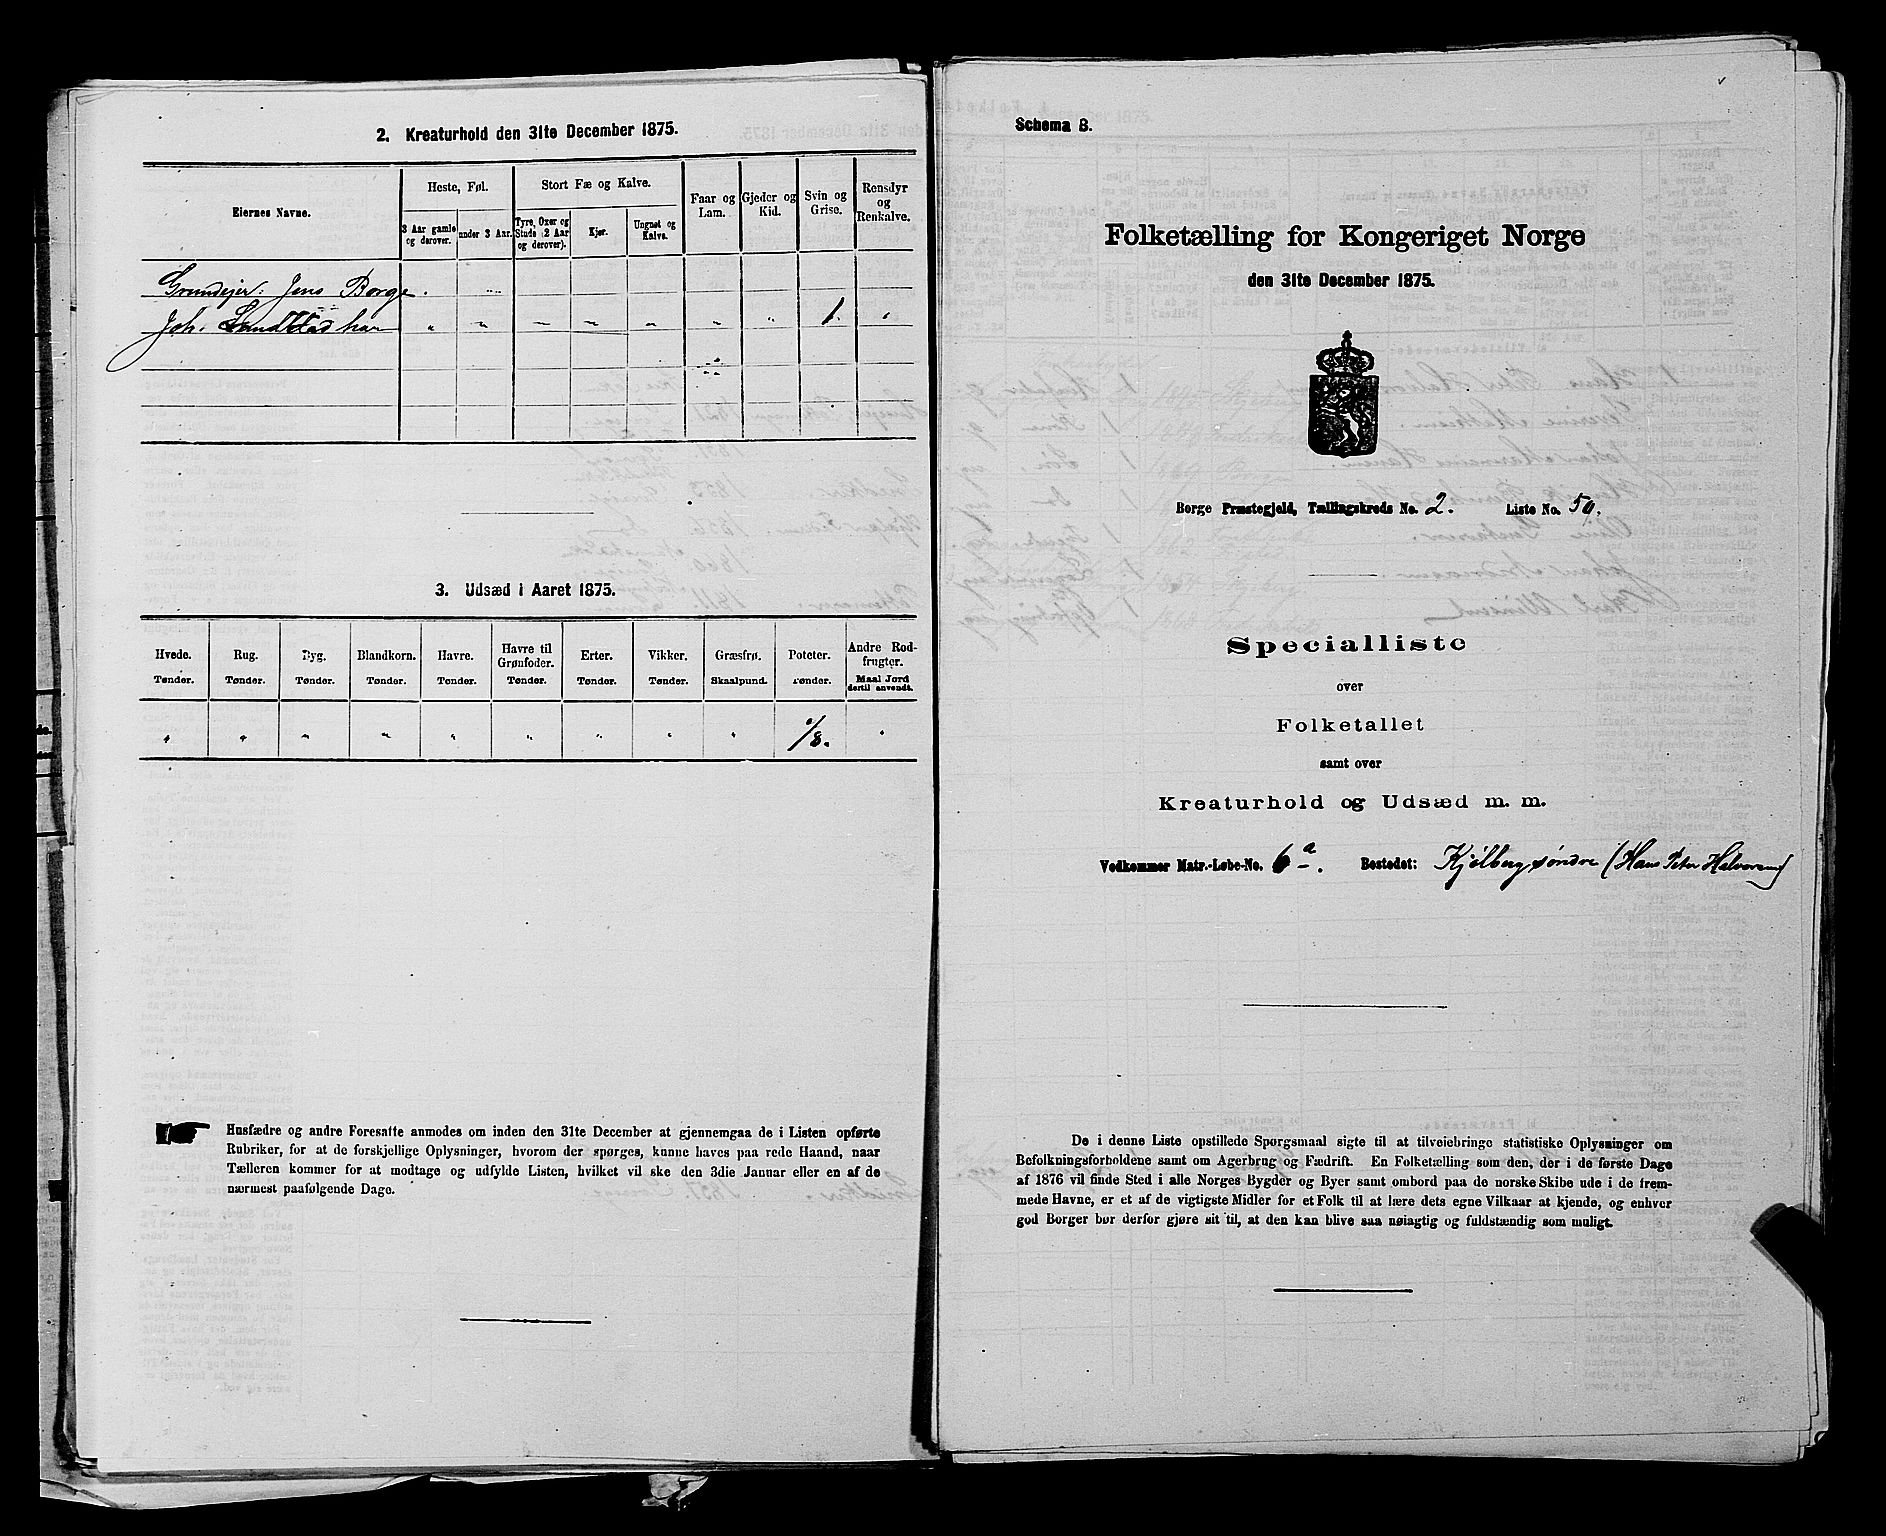 2. Kreaturhold den 31te December 1875.
Eiernes Navne.
Heste, Føl.
3 Aar gamle og derover.
under 3 Aar.
Stort Fæ og Kalve.
Tyre, Oxer og Stude (2 Aar og derover).
Kjør.
Ungnøt og Kalve.
Faar og Lam.
Gjeder og Kid.
Svin og Grise.
Rensdyr og Renkalve.
Grundejer: Jens Borge.
Joh. har " " " " " " " 1. "
3. Udsæd i Aaret 1875.
Hvede. Rug. Byg. Blandkorn. Havre. Havre til Grønfoder. Erter. Vikker. Græsfrø. Poteter. Andre Rodfrugter.
Tønder. Tønder. Tønder. Tønder. Tønder. Tønder. Tønder. Tønder. Skaalpund. Tønder. Maal Jord dertil anvendt.
" " " " " " " " " 6/8. "
Husfædre og andre Foresatte anmodes om inden den 31te December at gjennemgaa de i Listen opførte
Rubriker, for at de forskjellige Oplysninger, hvorom der spørges, kunne haves paa rede Haand, naar
Tælleren kommer for at modtage og udfylde Listen, hvilket vil ske den 3die Januar eller en af de
nærmest paafølgende Dage.
Schema 8.
Folketælling for Kongeriget Norge
den 31te December 1875.
Borge Præstegjeld, Tællingskreds No. 2. Liste No. 59.
Specialliste
over
Folketallet
samt over
Kreaturhold og Udsæd m. m.
Vedkommer Matr.-Løbe-No. 6a. Bostedet: Kjølberg søndre (Hans Peter Halvorsen)
De i denne Liste opstillede Spørgsmaal sigte til at tilveiebringe statistiske Oplysninger om
Befolkningsforholdene samt om Agerbrug og Fædrift. En Folketælling som den, der i de første Dage
af 1876 vil finde Sted i alle Norges Bygder og Byer samt ombord paa de norske Skibe ude i de frem-
mede Havne, er et af de vigtigste Midler for et Folk til at lære dets egne Vilkaar at kjende, og enhver
god Borger bør derfor gjøre sit til, at den kan blive saa nøiagtig og fuldstændig som muligt.